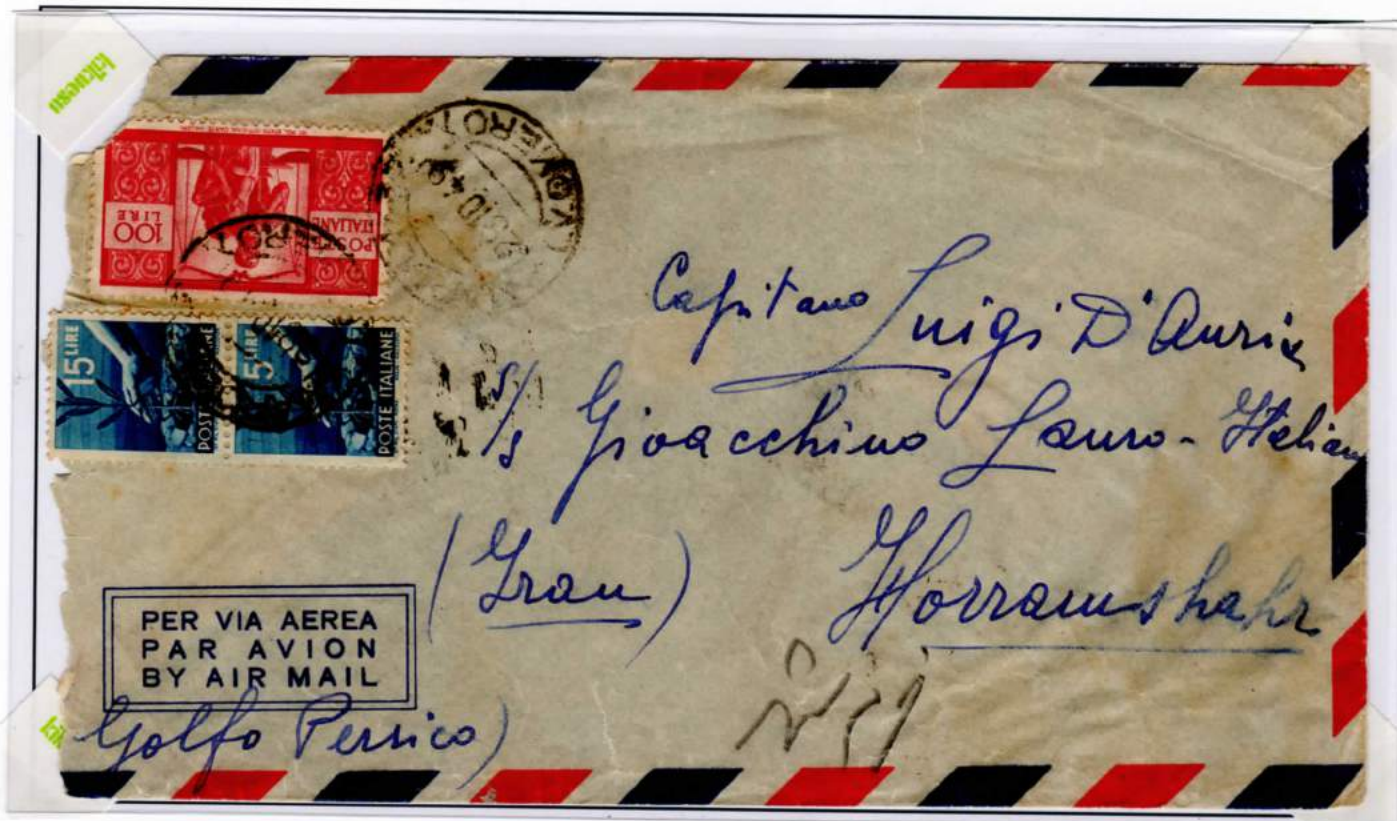 kikusu
100
LIRE
POSTE
ITALIANE
15 LIRE
POSTE ITALIANE
15 LIRE
POSTE ITALIANE
Capitano Luigi D'Auria
S/s Gioacchino Lauro - Italian
(Iran) Horramshahr
PER VIA AEREA
PAR AVION
BY AIR MAIL
Golfo Persico)